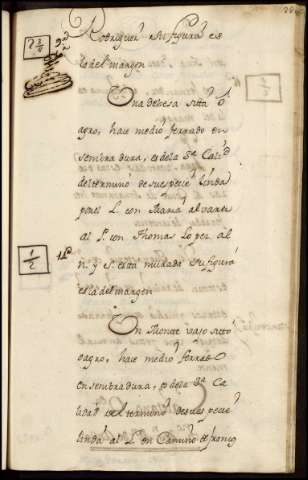 Rodriguez su figura es
la del margen
Una dehesa sitta o
agro, hace medio ferrado en
sembradura, es dela 3ª Calid
del termino de su especie linda
por el L. con Maria alvarez
al P. con Thomas Lopez, al
N. y S. esta murada su figura
es la del margen
1/2
Un Monte vajo sitto
oagro, hace medio ferrado
en sembradura, es dela 3ª Ca
lidad del termino de su especie
linda al L. con Camino de